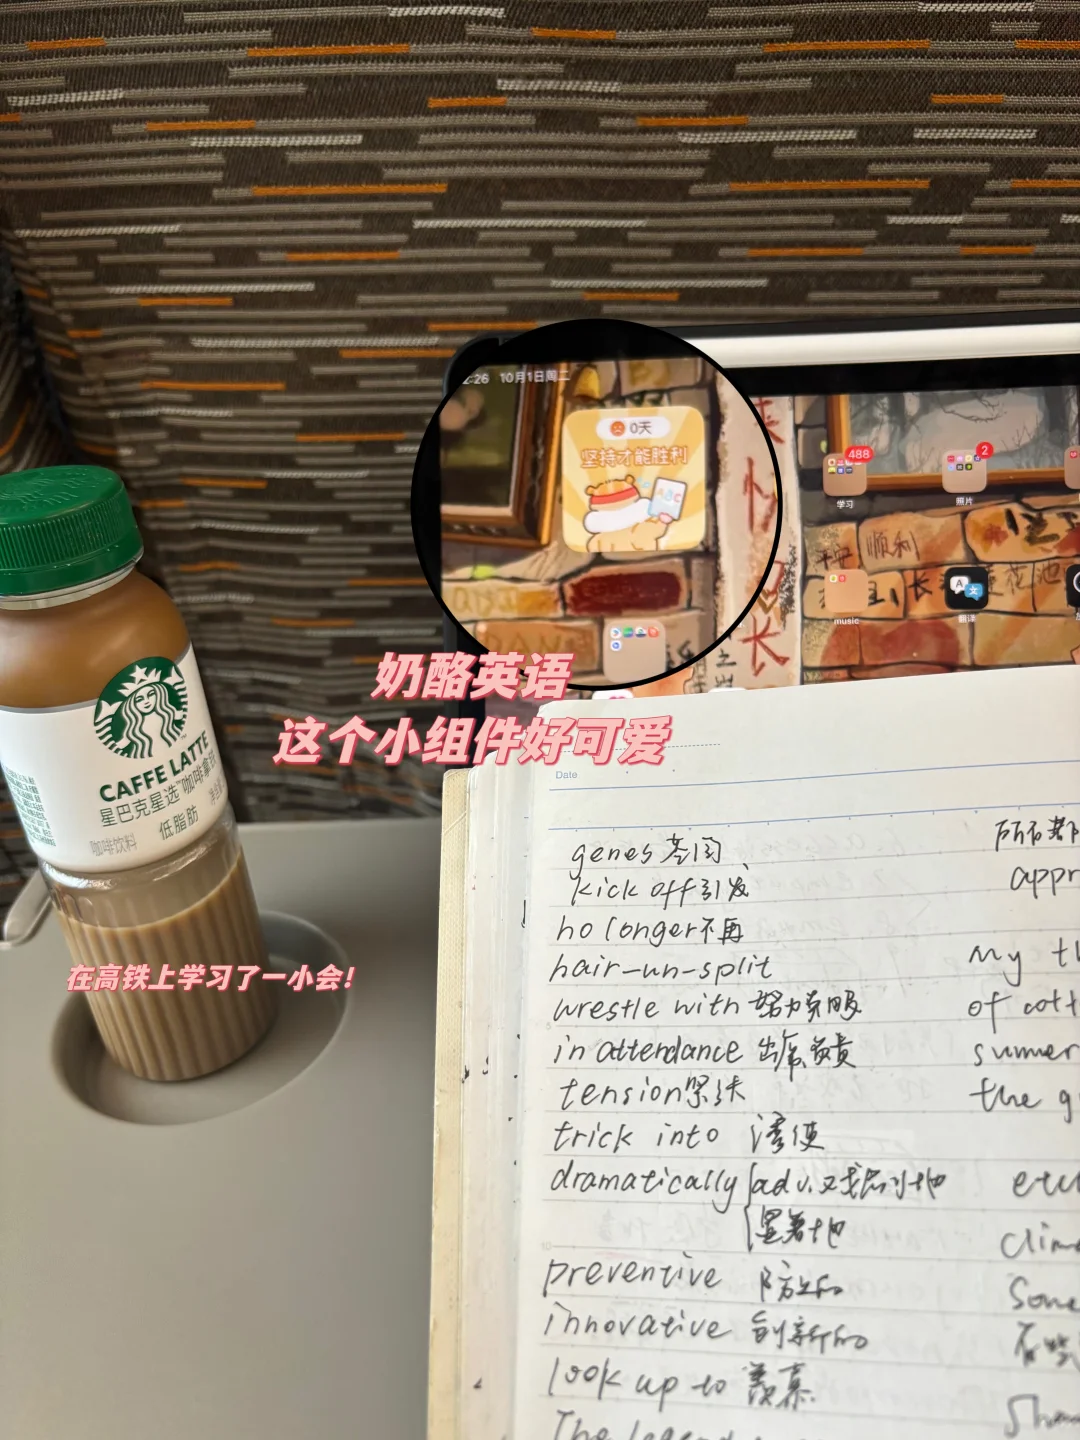 2:26 10月1日周二
0天
坚持才能胜利
ABC
488
2
学习
照片
顺利
music
翻译
长
奶酪英语
这个小组件好可爱
CAFFE LATTE
星巴克星选™咖啡拿铁
咖啡饮料
低脂肪
在高铁上学习了一小会!
Date
genes 基因
kick off 引发
no longer 不再
hair-un-split
wrestle with 努力克服
in attendance 出席,负责
tension 紧张
trick into 诱使
dramatically adv. 戏剧地
显著地
preventive 防止的
innovative 创新的
look up to 羡慕
The legend
所有都
appr
My th
of cott
summer
the g
etc
clim
Some
有些